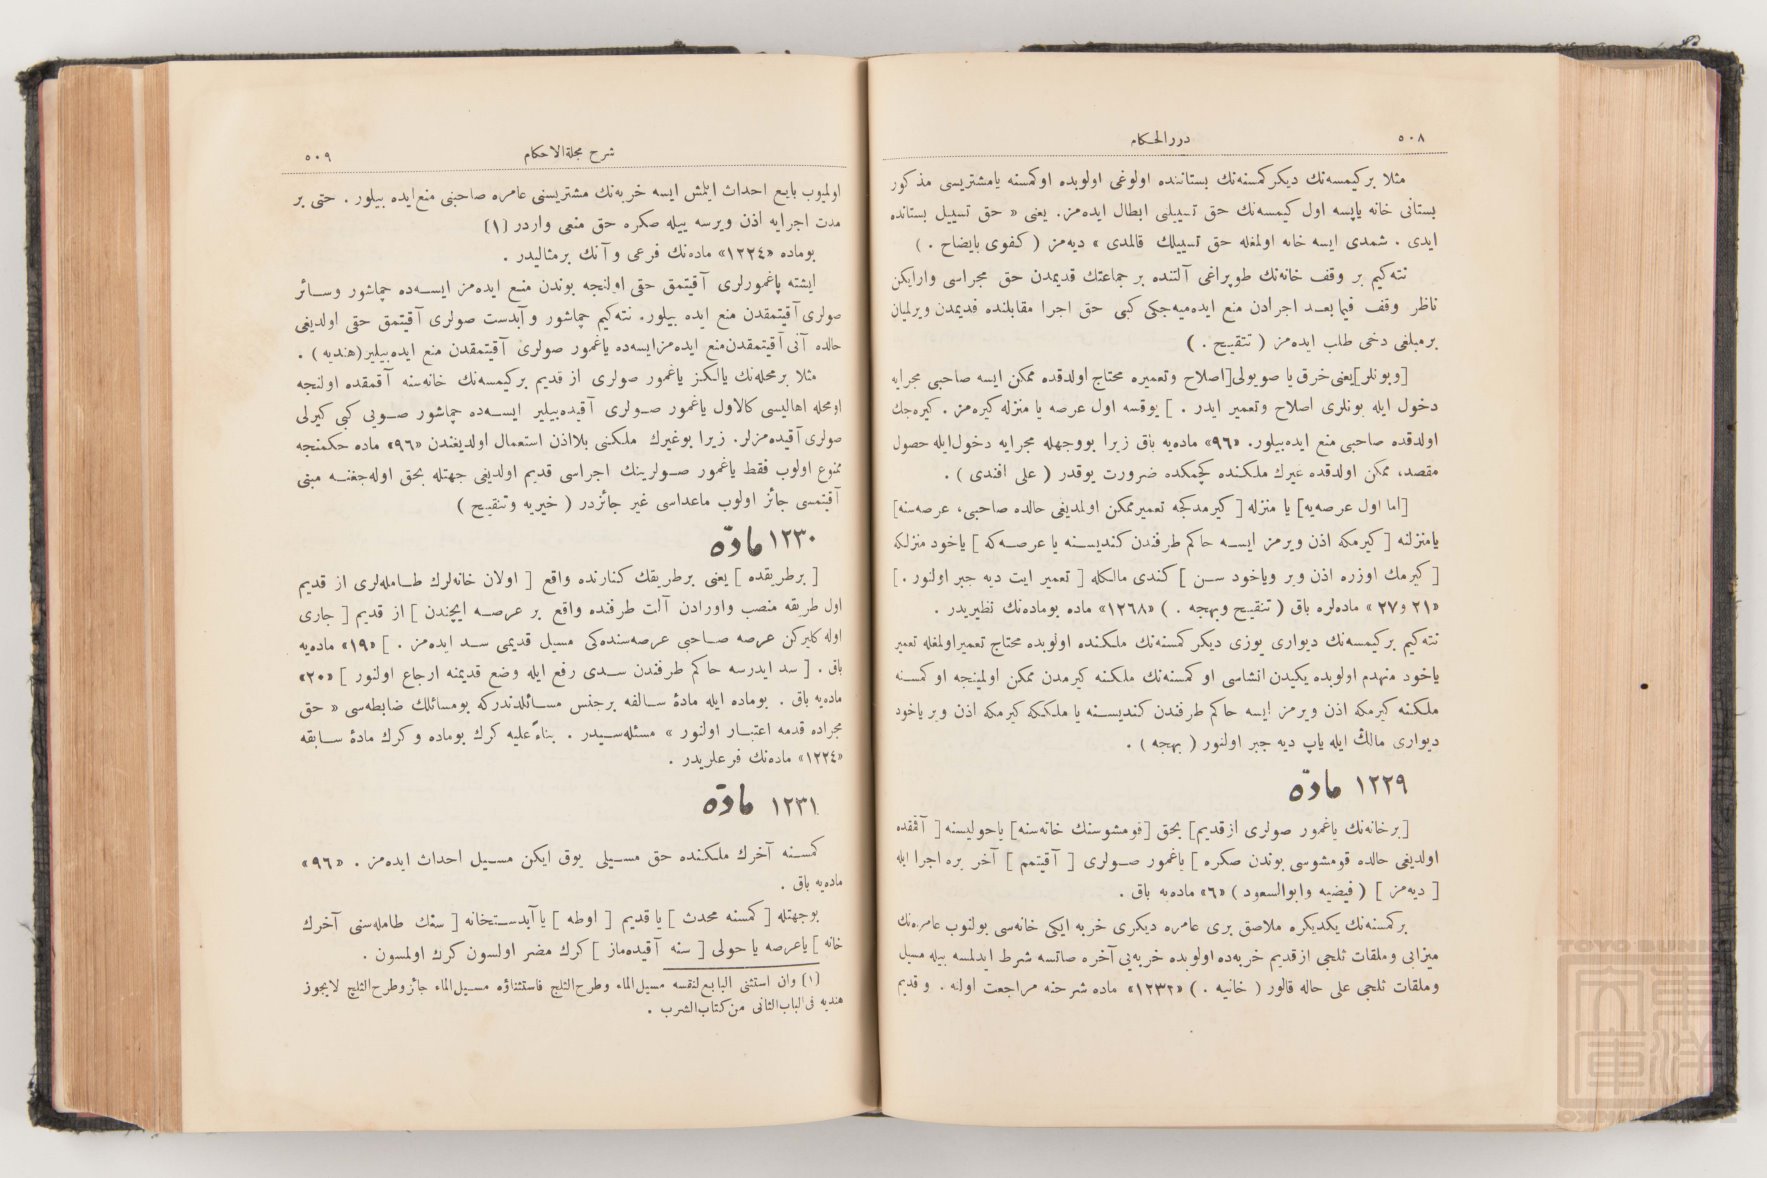 ٥٠٨
دررالحكام
مثلا بركیمسه‌نك دیكركمسنه‌نك بستاننده اولوغی اولوبده اوكمسنه یامشتریسی مذكور
بستانی خانه یاپسه اول كیمسه‌نك حق تسییلی ابطال ایده‌مز. یعنی « حق تسییل بستانده
ایدی . شمدی ایسه خانه اولمغله حق تسییلك قالمدی » دیه‌مز ( كفوی بایضاح . )
نته‌كیم بر وقف خانه‌نك طوپراغی آلتنده بر جماعتك قدیمدن حق مجراسی وارایكن
ناظر وقف فیما بعد اجرادن منع ایده‌میه‌جكی كبی حق اجرا مقابلنده قدیمدن ویرلمیان
برمبلغی دخی طلب ایده‌مز ( تنقیح . )
[وبونلر]یعنی‌خرق یا صویولی[اصلاح وتعمیره محتاج اولدقده ممكن ایسه صاحبی مجرایه
دخول ایله بونلری اصلاح وتعمیر ایدر . ] یوقسه اول عرصه یا منزله كیره‌مز . كیره‌جك
اولدقده صاحبی منع ایده‌بیلور. «٩٦» ماده‌یه باق زیرا بووجهله مجرایه دخول‌ایله حصول
مقصد، ممكن اولدقده غیرك ملكنده كچمكده ضرورت یوقدر ( علی افندی ) .
[اما اول عرصه‌یه] یا منزله [ كیرمدكجه تعمیرممكن اولمدیغی حالده صاحبی، عرصه‌سنه]
یامنزلنه [ كیرمكه اذن ویرمز ایسه حاكم طرفندن كندیسنه یا عرصه‌كه ] یاخود منزلكه
[ كیرمك اوزره اذن ویر ویاخود سن ] كندی مالكله [ تعمیر ایت دیه جبر اولنور . ]
«٢١ و٢٧ » ماده‌لره باق ( تنقیح وبهجه . ) «١٢٦٨» ماده بوماده‌نك نظیریدر .
نته‌كیم بركیمسه‌نك دیواری یوزی دیكر كمسنه‌نك ملكنده اولوبده محتاج تعمیراولمغله تعمیر
یاخود منهدم اولوبده یكیدن انشاسی او كمسنه‌نك ملكنه كیرمدن ممكن اولمینجه او كمسنه
ملكنه كیرمكه اذن ویرمز ایسه حاكم طرفندن كندیسنه یا ملككه كیرمكه اذن ویر یاخود
دیواری مالك ایله یاپ دیه جبر اولنور ( بهجه ) .
١٢٢٩ مادّه
[برخانه‌نك یاغمور صولری ازقدیم] بحق [قومشوسنك خانه‌سنه] یاحولیسنه [ آقمقده
اولدیغی حالده قومشوسی بوندن صكره ] یاغمور صولری [ آقیتمم ] آخر یره اجرا ایله
[ دیه‌مز ] ( فیضیه وابوالسعود ) «٦» ماده‌یه باق .
بركمسنه‌نك یكدیكره ملاصق بری عامره دیكری خربه ایكی خانه‌سی بولنوب عامره‌نك
میزابی وملقات ثلجی ازقدیم خربه‌ده اولوبده خربه‌یی آخره صاتسه شرط ایدلمسه بیله مسیل
وملقات ثلجی علی حاله قالور ( خانیه . ) «١٢٣٢» ماده شرحنه مراجعت اولنه . وقدیم
شرح مجلة‌الاحكام
٥٠٩
اولمیوب بایع احداث ایلمش ایسه خربه‌نك مشتریسنی عامره صاحبنی منع‌ایده بیلور . حتی بر
مدت اجرایه اذن ویرسه بیله صكره حق منعی واردر [١]
بوماده «١٢٢٤» ماده‌نك فرعی وآنك برمثالیدر .
ایشته یاغمورلری آقیتمق حقی اولنجه بوندن منع ایده‌مز ایسه‌ده چماشور وسائر
صولری آقیتمقدن منع ایده بیلور. نته‌كیم چماشور وآبدست صولری آقیتمق حقی اولدیغی
حالده آنی آقیتمقدن‌منع ایده‌مزایسه‌ده یاغمور صولری آقیتمقدن منع ایده‌بیلیر(هندیه) .
مثلا برمحله‌نك یالكز یاغمور صولری از قدیم بركیمسه‌نك خانه‌سنه آقمقده اولنجه
اومحله اهالیسی كالاول یاغمور صولری آقیده‌بیلیر ایسه‌ده چماشور صویی كبی كیرلی
صولری آقیده‌مزلر. زیرا بوغیرك ملكنی بلااذن استعمال اولدیغندن «٩٦» ماده حكمنجه
ممنوع اولوب فقط یاغمور صولرینك اجراسی قدیم اولدیغی جهتله بحق اوله‌جغنه مبنی
آقیتمسی جائز اولوب ماعداسی غیر جائزدر ( خیریه وتنقیح )
١٢٣٠ مادّه
[ برطریقده ] یعنی برطریقك كنارنده واقع [ اولان خانه‌لرك طامله‌لری از قدیم
اول طریقه منصب واورادن آلت طرفنده واقع بر عرصه ایچندن ] از قدیم [ جاری
اوله كلیركن عرصه صاحبی عرصه‌سنده‌كی مسیل قدیمی سد ایده‌مز . ] «١٩» ماده‌یه
باق . [ سد ایدرسه حاكم طرفندن سدی رفع ایله وضع قدیمنه ارجاع اولنور ] «٢٠»
ماده‌یه باق . بوماده ایله مادۀ سالفه برجنس مسائلدندركه بومسائلك ضابطه‌سی « حق
مجراده قدمه اعتبار اولنور » مسئله‌سیدر . بناءً علیه كرك بوماده وكرك مادۀ سابقه
«١٢٢٤» ماده‌نك فرعلریدر .
١٢٣١ مادّه
كمسنه آخرك ملكنده حق مسیلی یوق ایكن مسیل احداث ایده‌مز . «٩٦»
ماده‌یه باق .
بوجهتله [ كمسنه محدث ] یا قدیم [ اوطه ] یا آبدستخانه [ سنك طامله‌سنی آخرك
خانه ] یاعرصه یا حولی [ سنه آقیده‌ماز ] كرك مضر اولسون كرك اولمسون .
[١] وان استثنی البایع لنفسه مسیل‌الماء وطرح‌الثلج فاستثناؤه مسیل‌الماء جائزوطرح‌الثلج لایجوز
هندیه فی‌الباب‌الثانی من كتاب‌الشرب .
TOYO BUNKO